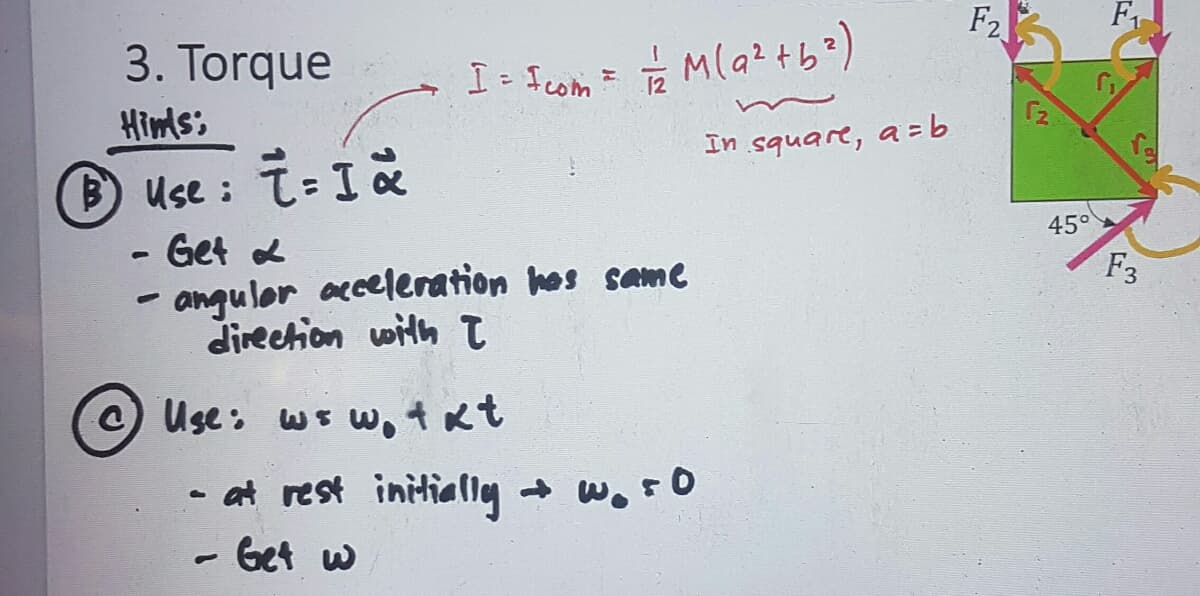 3. Torque
I = Icom = 1/12 M(a² + b²)
In square, a = b
Hints:
B Use : τ⃗ = I α⃗
- Get α
- angular acceleration has same
direction with τ
C Use : ω = ω₀ + αt
- at rest initially → ω₀ = 0
- Get ω
F₂
F₁
r₁
r₂
r₃
45°
F₃